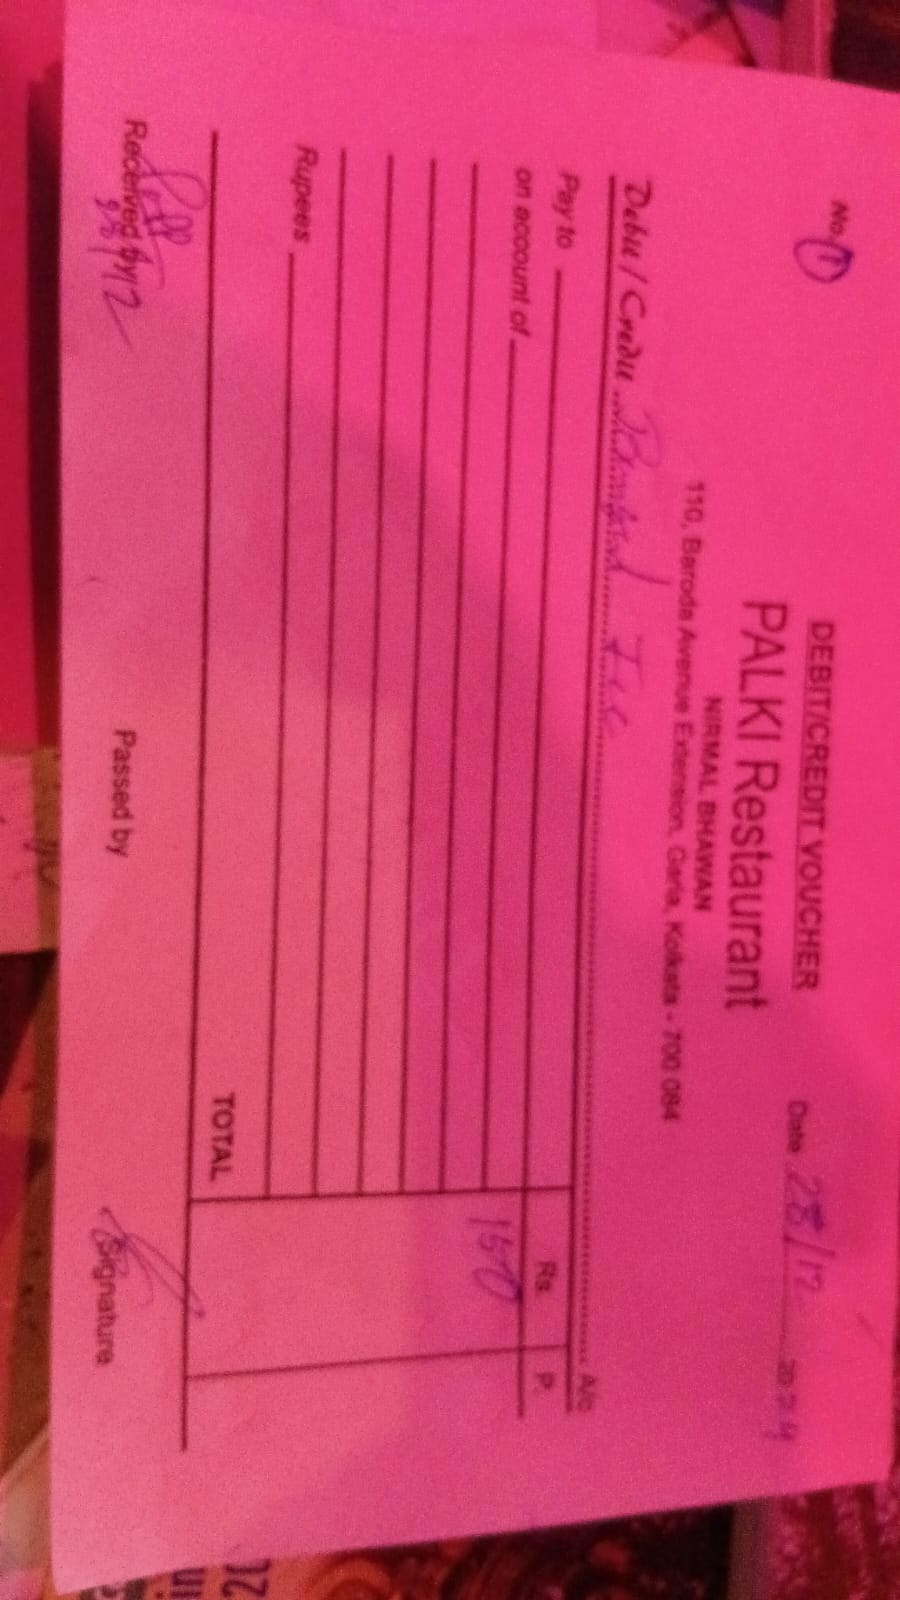 No. 1
DEBIT/CREDIT VOUCHER
Date 28/12 2024
PALKI Restaurant
NIRMAL BHAWAN
110, Baroda Avenue Extension, Garia, Kolkata - 700 084
Debit / Credit A/c
Pay to Rs. P.
on account of
150
Rupees
TOTAL
Received by 28/12 Passed by Signature